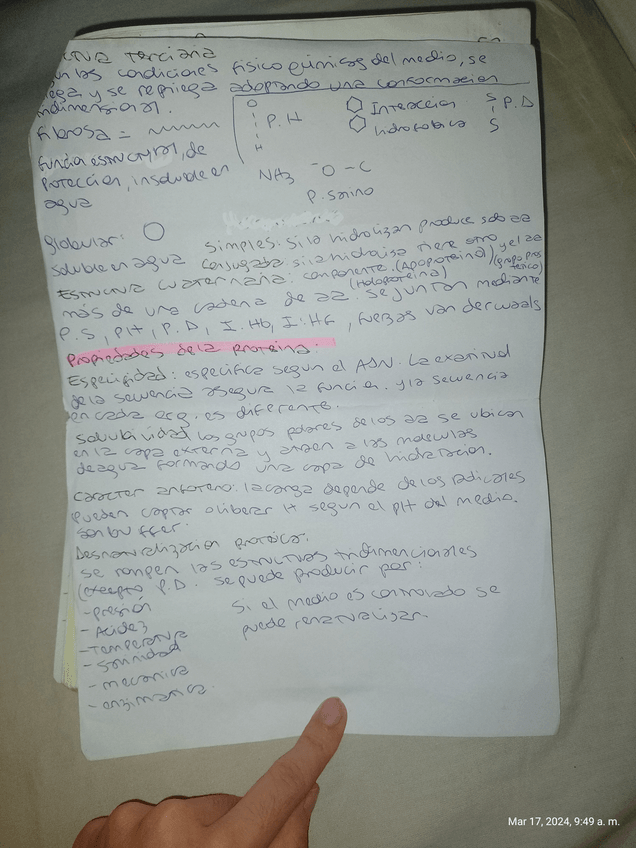 terciaria
las condiciones fisicoquimicas del medio, se
y se repliega adoptando una conformacion
fibrosa =
O
H
P.H
Interaccion
hidrofobica
S
S
P.D
funcion estructural, de
Proteccion, insoluble en
agua
NH3 -O-C
P. salino
globular:
soluble en agua
simples: si la hidrolizan produce solo aa
conjugada: si la hidrolisis tiene otro
componente. (Apoproteina) y el aa
(Holoproteina) (grupo pros
tetico)
Estructura cuaternaria:
más de una cadena de aa. se juntan mediante
P.S, PH, P.D, I.Hb, I.HF, fuerzas van der waals
Propiedades de la proteina:
Especifidad: especifica segun el ADN. La exactitud
de la secuencia asegura la funcion. y la secuencia
en cada org. es diferente.
Solubilidad los grupos polares de los aa se ubican
en la capa externa y atraen a las moleculas
de agua formando una capa de hidratacion.
Caracter anfotero: la carga depende de los radicales
pueden captar o liberar H segun el pH del medio.
son buffer.
Desnaturalizacion proteica.
se rompen las estructuras tridimencionales
(excepto P.D. se puede producir por:
- Presión
- Acidez
- Temperatura
- Salinidad
- mecanica
- enzimatica.
Si el medio es controlado se
puede renaturalizar.
Mar 17, 2024, 9:49 a. m.